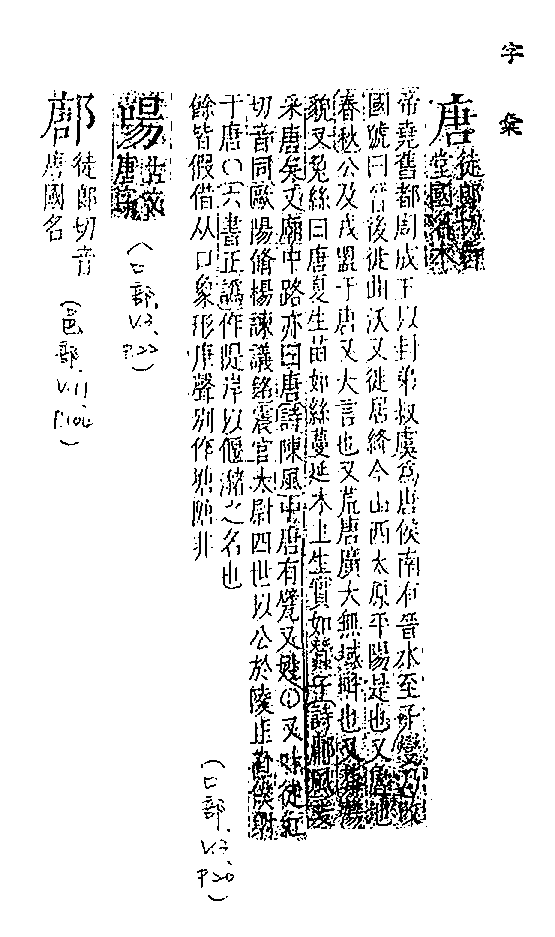 字彙
唐 徒郎切
堂國名
帝堯舊都周成王以封弟叔虞爲唐侯南有晉水至子燮乃改
國號曰晉後徙曲沃又徙居絳今山西太原平陽是也又唐地
春秋公及戎盟于唐又大言也又荒唐廣大無域畔也又
貌又兔絲曰唐夏生苗如絲蔓延木上生實如蠶子詩鄘風爰
采唐矣又廟中路亦曰唐詩陳風中唐有甓又姓○又叶徒紅
切音同歐陽脩楊諫議銘震官太尉四世以公於陵正直僕射
于唐○六書正譌作隄岸以偃瀦之名也
餘皆假借从口象形庚聲別作塘隚非
(口部.V.3.P.20)
啺 古文
唐
(口部.V.3.P.22)
鄌 徒郎切音
唐國名
(邑部.V.11.P.104)